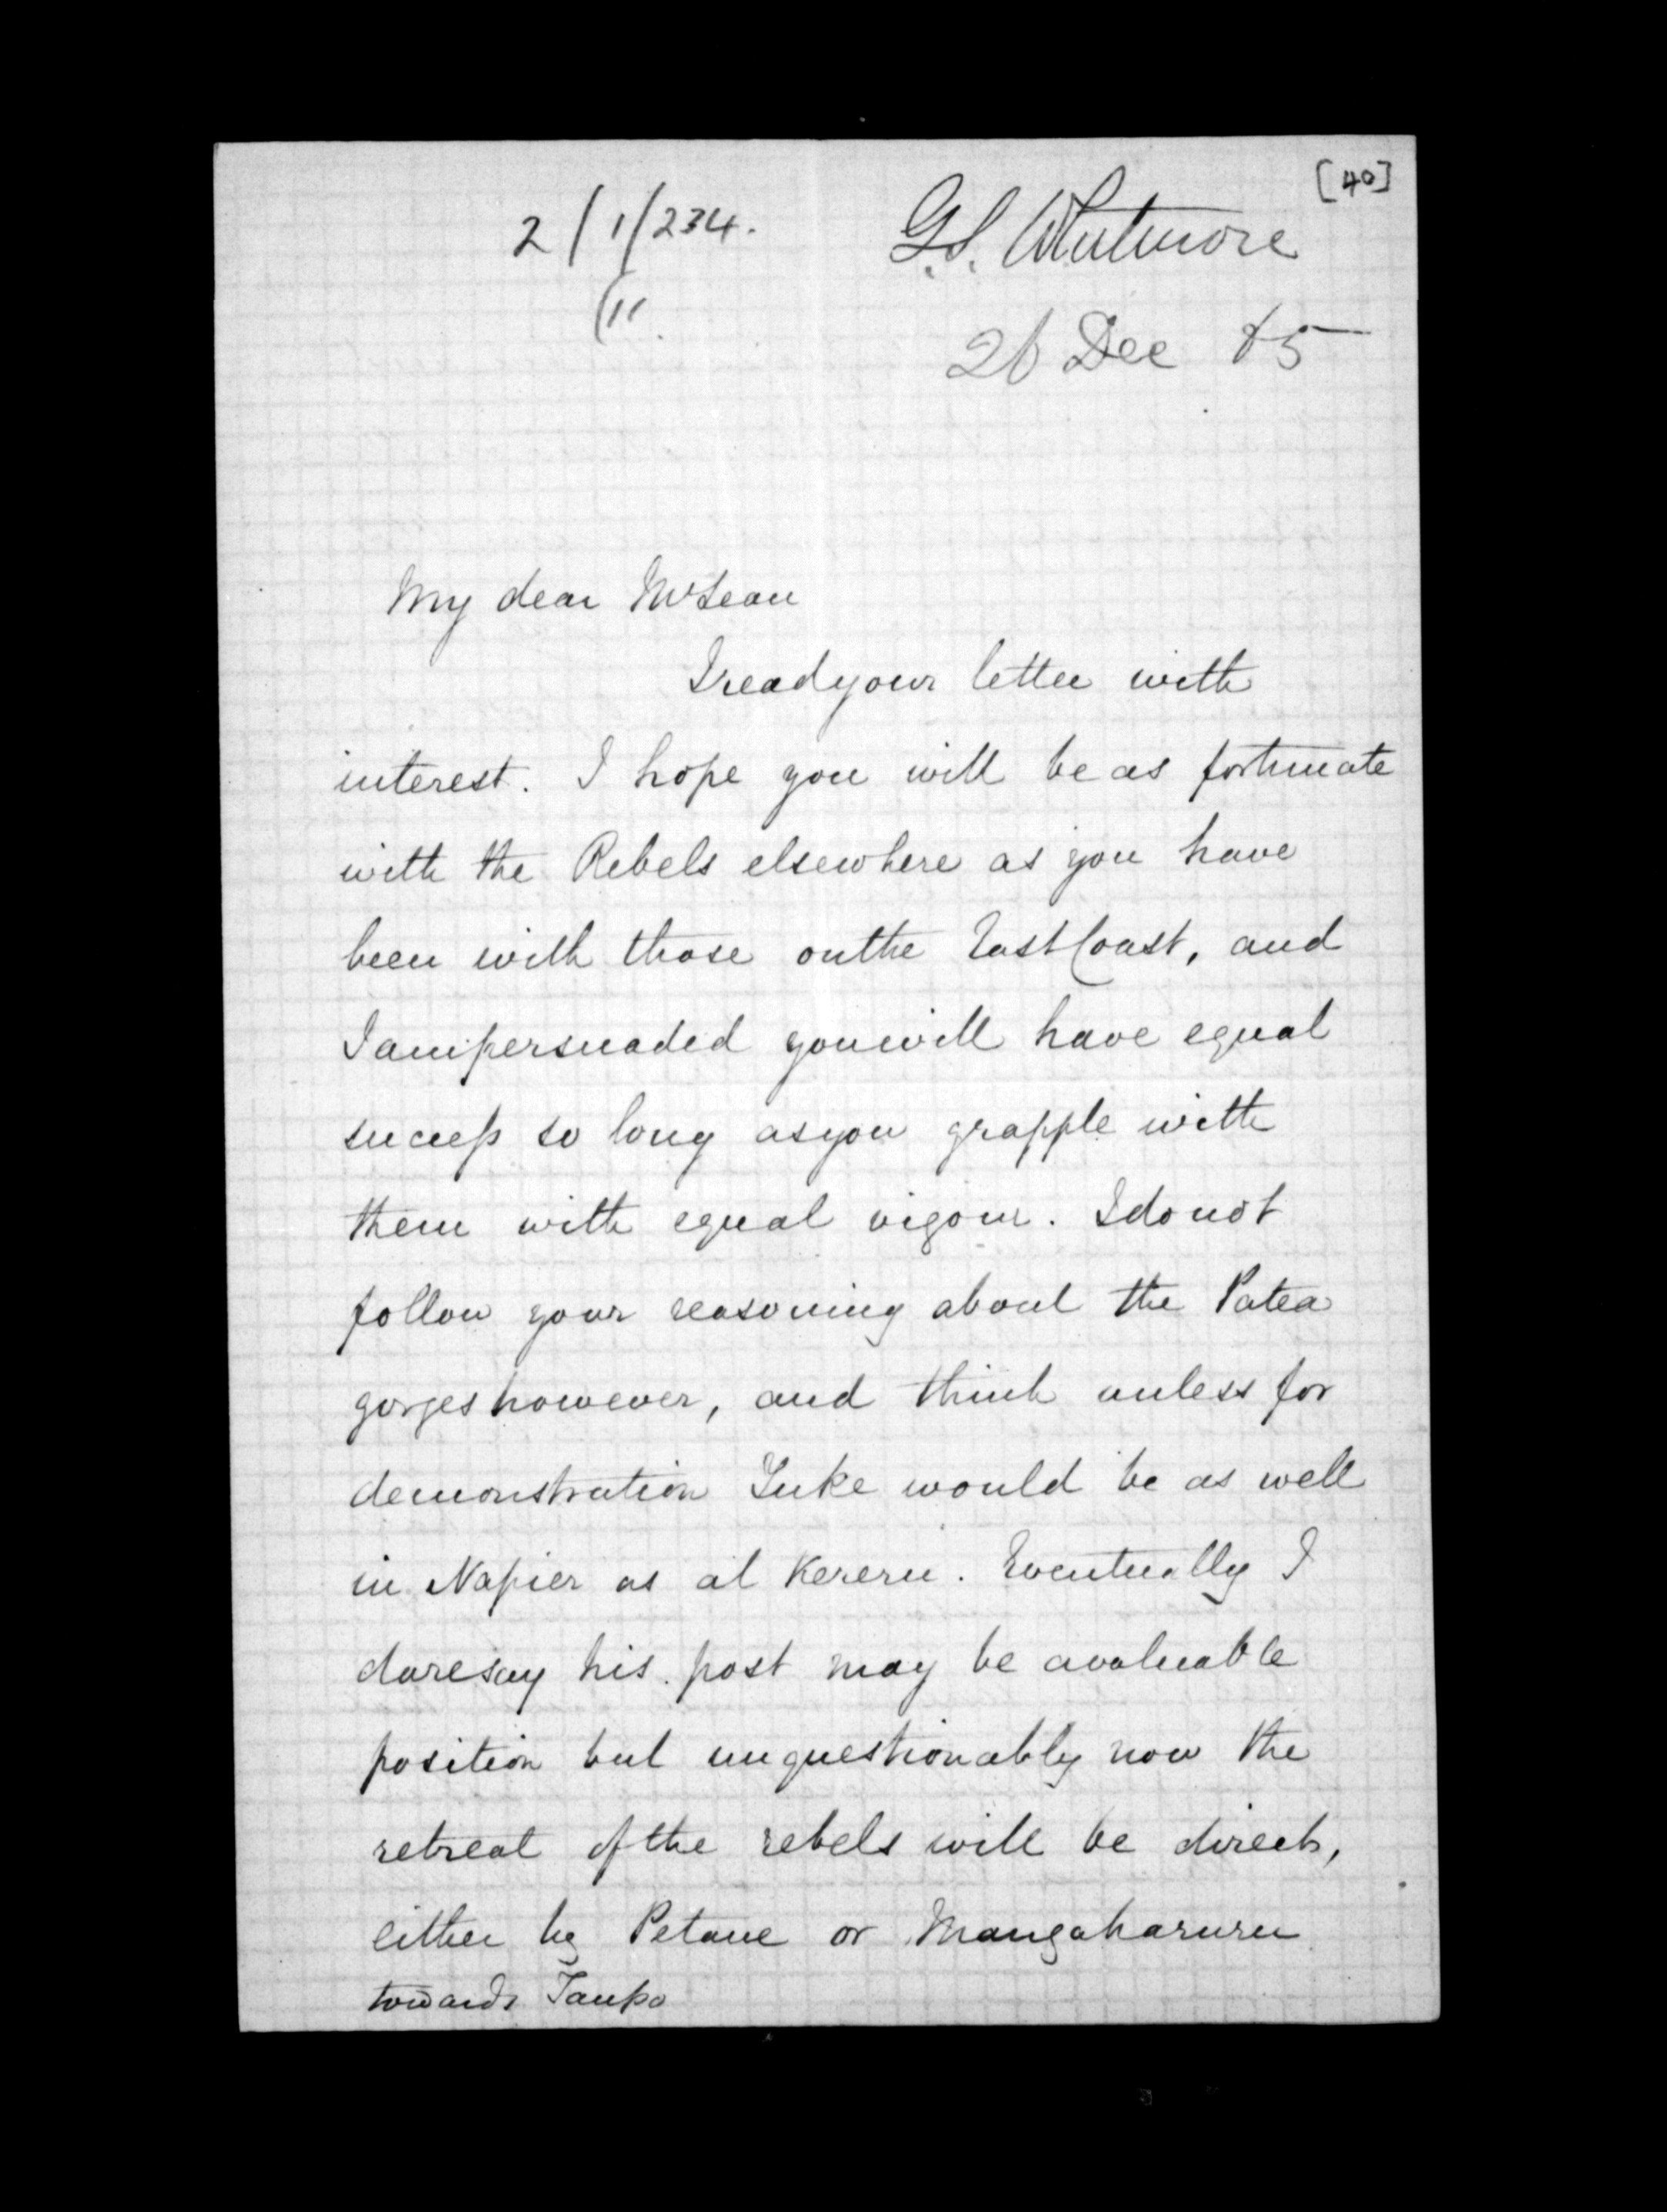 [40]
2/1/234.
G.S. Whitmore
(11.
26 Dec 65
My dear McLean
I read your letter with
interest. I hope you will be as fortunate
with the Rebels elsewhere as you have
been with those on the East Coast, and
I am persuaded you will have equal
success so long as you grapple with
them with equal vigour. I do not
follow your reasoning about the Patea
gorges however, and think unless for
demonstration Tuke would be as well
in Napier as at Kereru. Eventually I
daresay his post may be a valuable
position but unquestionably now the
retreat of the rebels will be direct,
either by Petane or Mangaharuru
towards Taupo